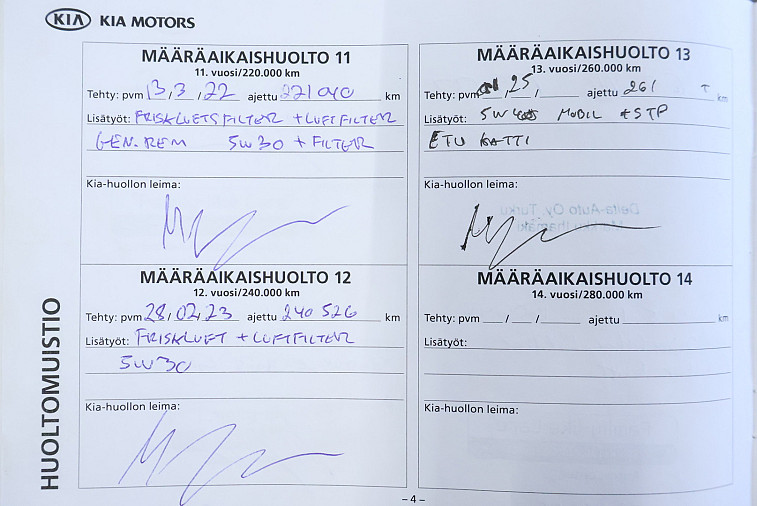 KIA KIA MOTORS
MÄÄRÄAIKAISHUOLTO 11
11. vuosi/220.000 km
Tehty: pvm 13,3,22 ajettu 221040 km
Lisätyöt: FRISKLUFTSFILTER + LUFTFILTER
GEN.REM 5W30 + FILTER
Kia-huollon leima:
MÄÄRÄAIKAISHUOLTO 12
12. vuosi/240.000 km
Tehty: pvm 28/02,23 ajettu 240 526 km
Lisätyöt: FRISKLUFT + LUFTFILTER
5W30
Kia-huollon leima:
MÄÄRÄAIKAISHUOLTO 13
13. vuosi/260.000 km
Tehty: pvm 25, ajettu 261 T km
Lisätyöt: 5W MOBIL + STP
ETU KATTI
Kia-huollon leima:
MÄÄRÄAIKAISHUOLTO 14
14. vuosi/280.000 km
Tehty: pvm __/__/____ ajettu ____ km
Lisätyöt:
Kia-huollon leima:
HUOLTOMUISTIO
– 4 –